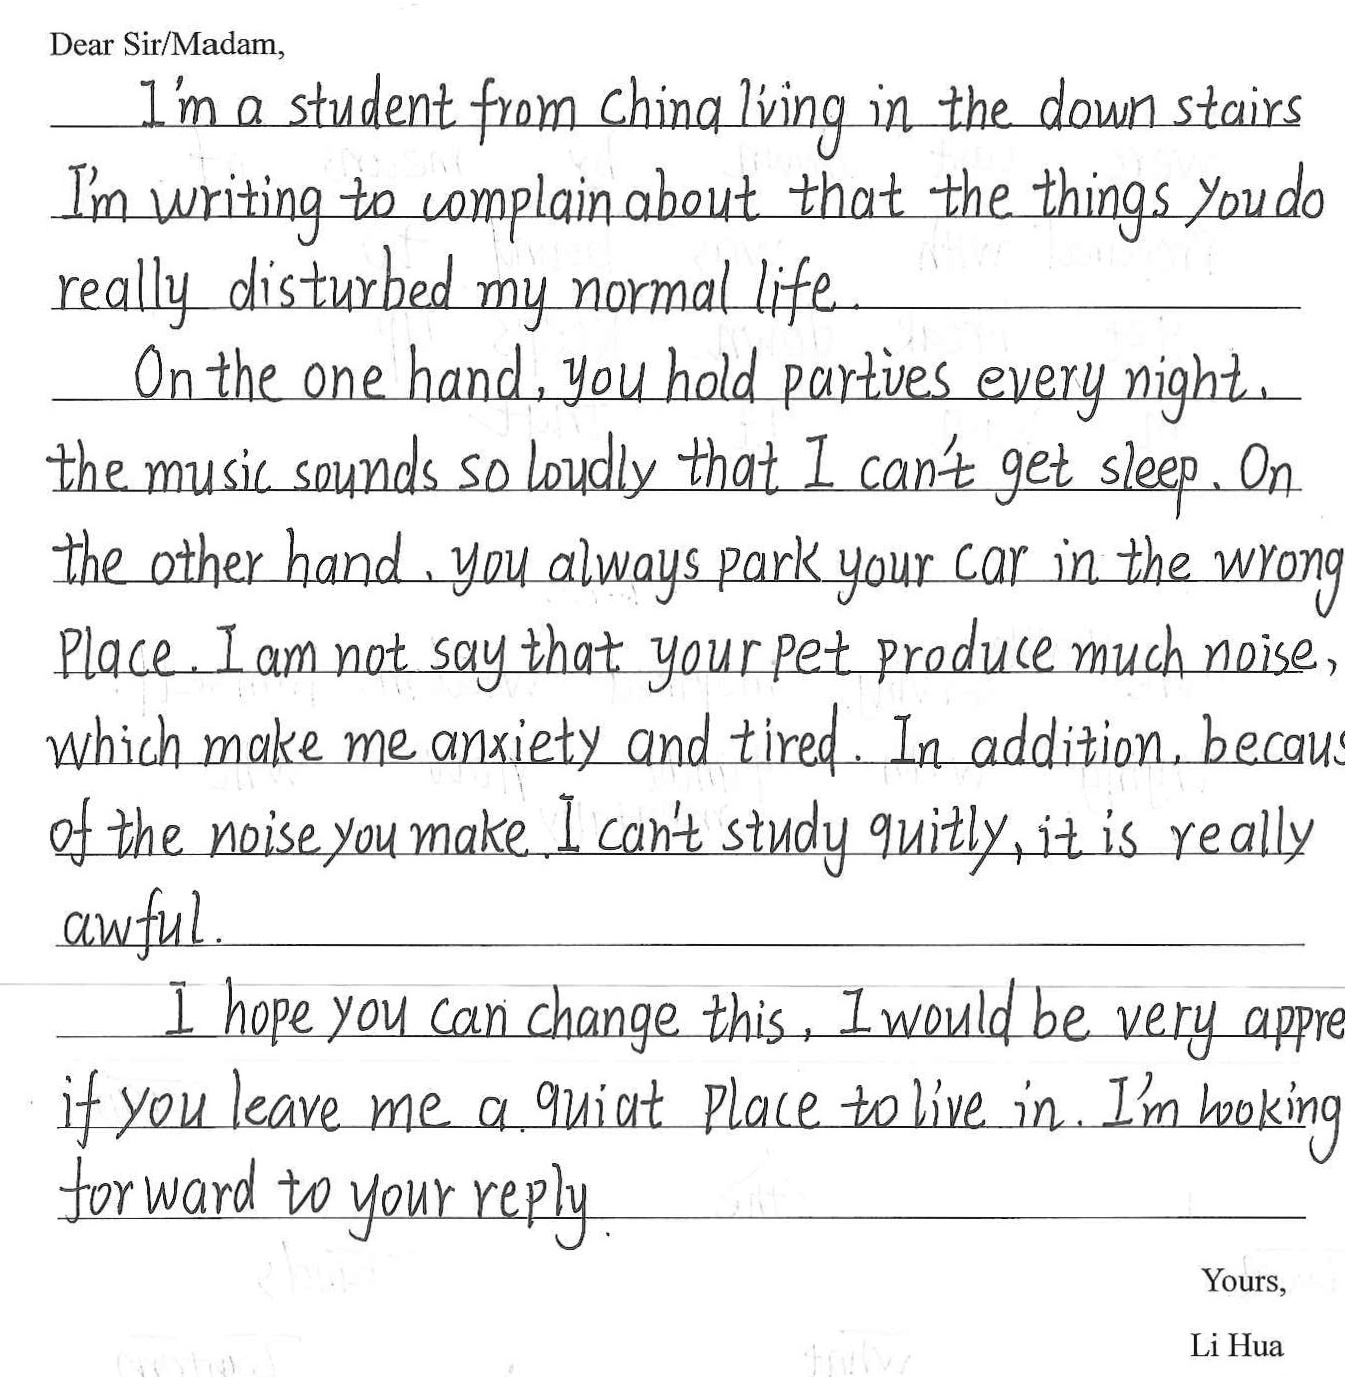 Dear Sir/Madam,
I'm a student from China living in the down stairs
I'm writing to complain about that the things you do
really disturbed my normal life.
On the one hand, you hold parties every night.
the music sounds so loudly that I can't get sleep. On
the other hand, you always park your car in the wrong
Place. I am not say that your pet produce much noise,
which make me anxiety and tired. In addition, becaus
of the noise you make I can't study quitly, it is really
awful.
I hope you can change this, I would be very appre
if you leave me a quiat Place to live in. I'm looking
forward to your reply.
Yours,
Li Hua